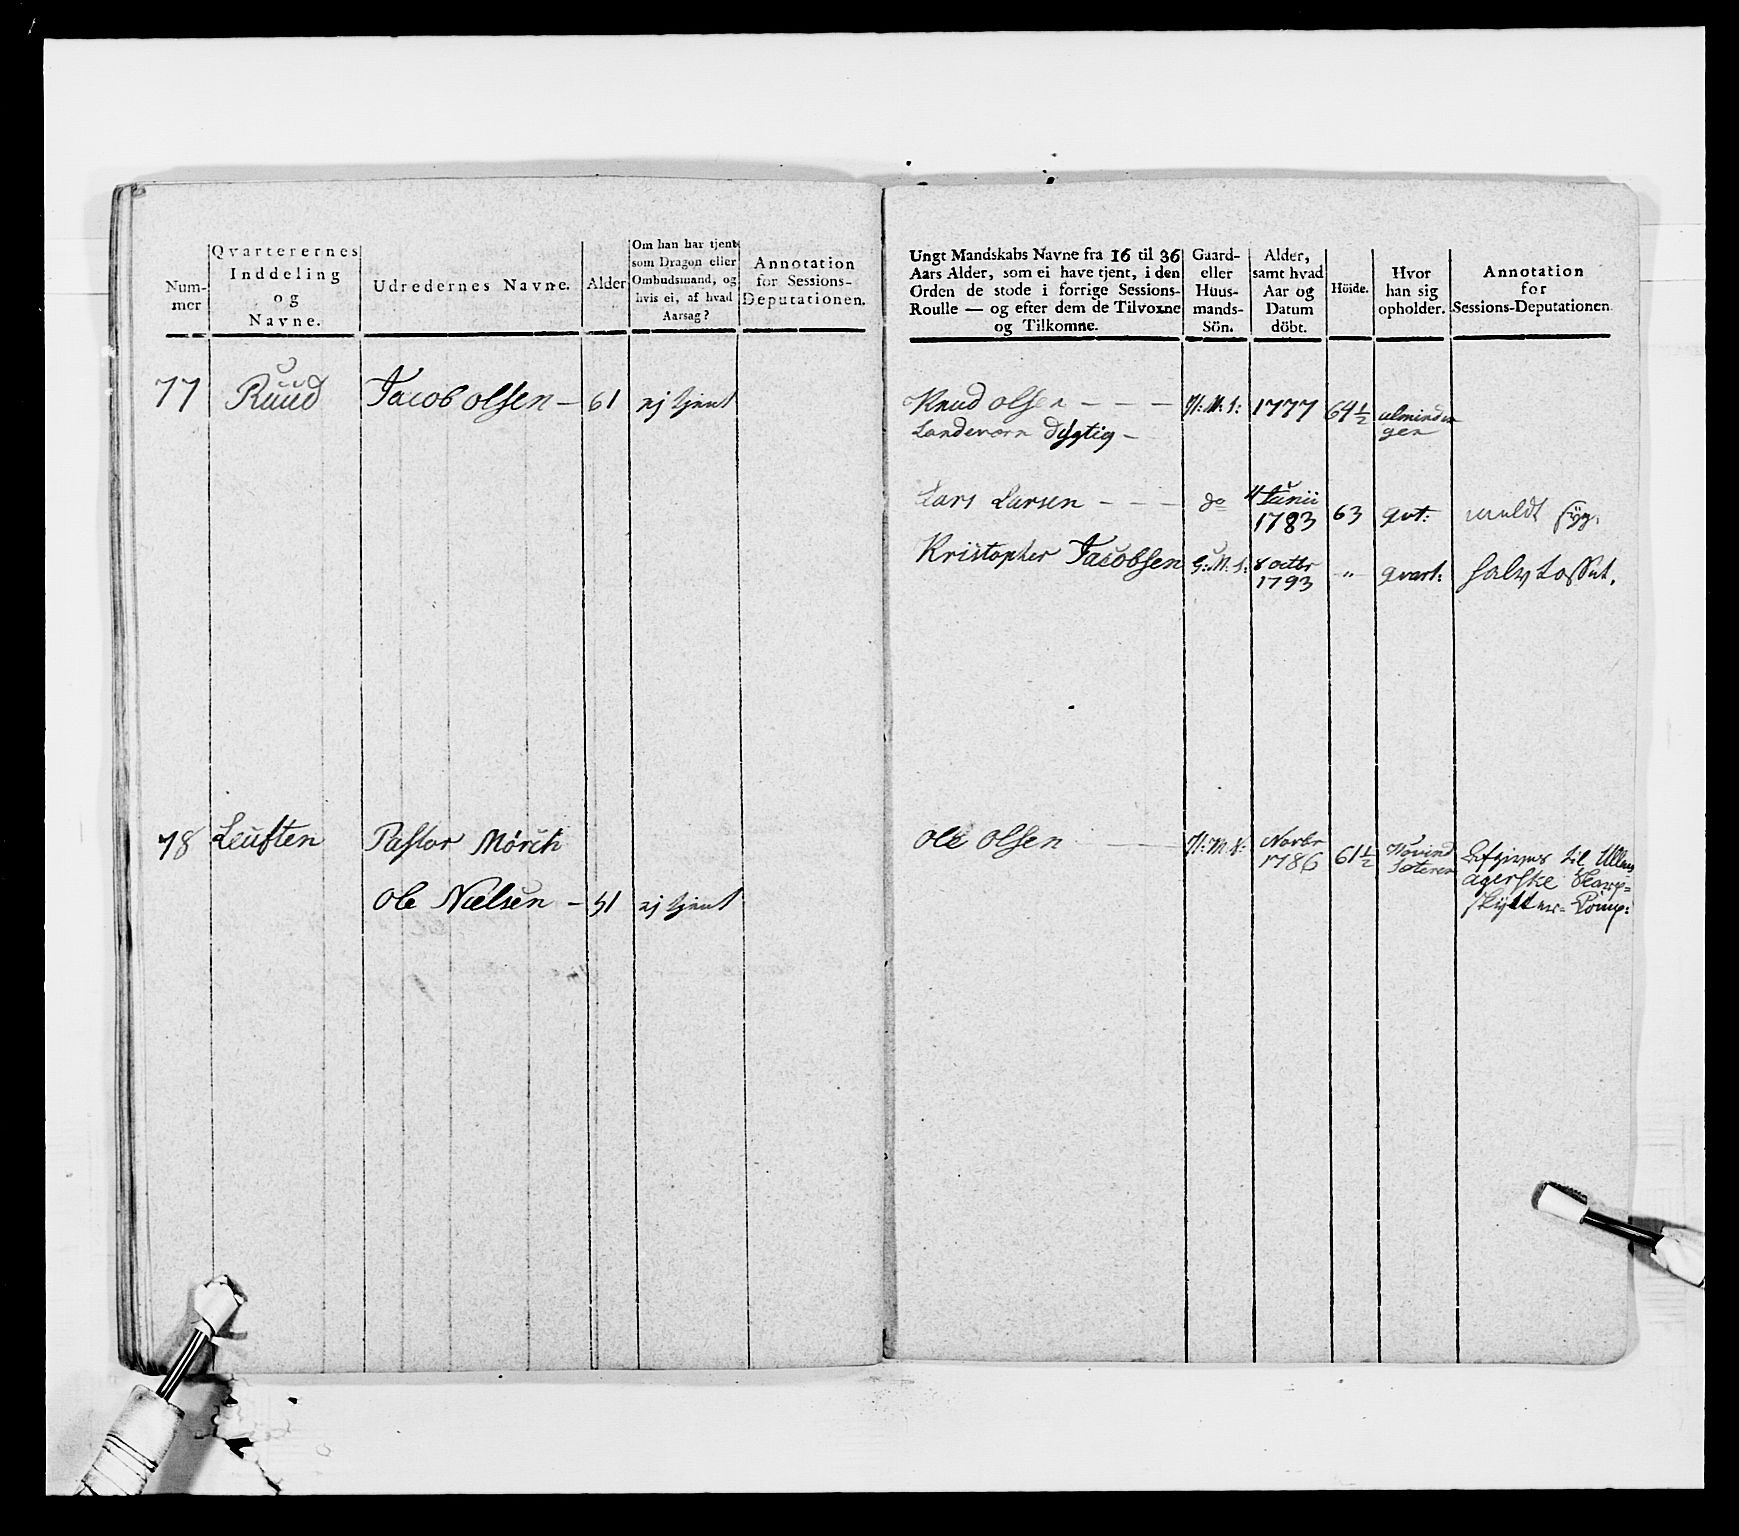 Num-
mer
Qvarterernes
Inddeling
og
Navne.
Udredernes Navne.
Alder
Om han har tjent
som Dragon eller
Ombudsmand, og
hvis ei, af hvad
Aarsag?
Annotation
for Sessions-
Deputationen.
77 Ruud Jacob olsen — 61 ej tjent
78 Leuften Pastor Mörch
Ole Nielsen — 51 ej tjent
Ungt Mandskabs Navne fra 16 til 36
Aars Alder, som ei have tjent, i den
Orden de stode i forrige Sessions-
Roulle — og efter dem de Tilvoxne
og Tilkomne.
Gaard-
eller
Huus-
mands-
Sön.
Alder,
samt hvad
Aar og
Datum
döbt.
Höide.
Hvor
han sig
opholder.
Annotation
for
Sessions-Deputationen.
Knud olsen — — — H: M: S: 1777 64 1/2 alminden
gen
Landeværn dygtig —
Lars Larsen — — — do 4 Junii
1783 63 qvt: meldt syg.
Kristopher Jacobsen G: M: S: 8 octbr
1793 " qvart: halv tosset.
ole olsen H: M: S: Novbr
1786 61 1/2
Sæteren
Afgives til Ullens
agerske Skarp=
skytter= Comp: